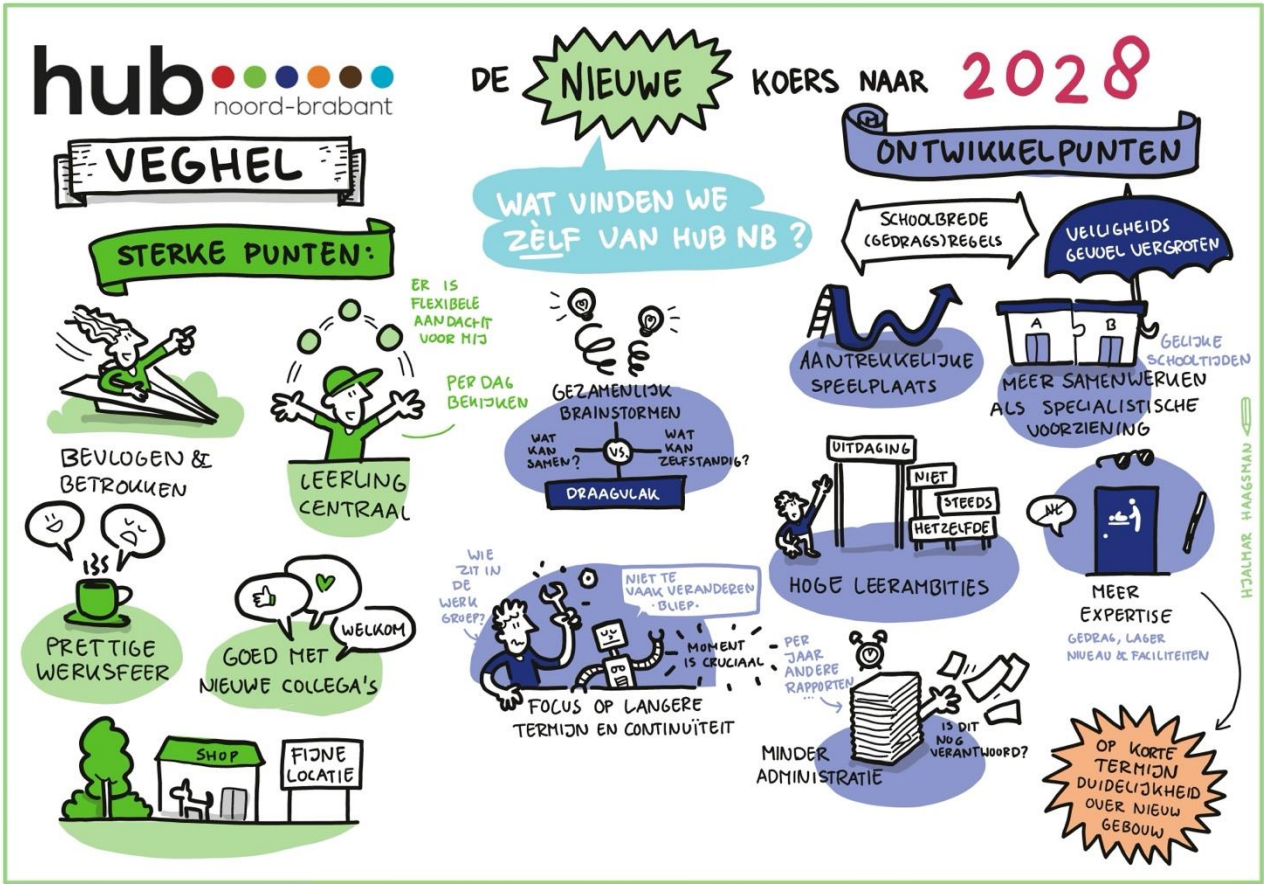 hub
noord-brabant
DE NIEUWE KOERS NAAR 2028
VEGHEL
STERKE PUNTEN:
ER IS
FLEXIBELE
AANDACHT
VOOR MIJ
PER DAG
BEKIJKEN
BEVLOGEN &
BETROKKEN
LEERLING
CENTRAAL
PRETTIGE
WERKSFEER
WELKOM
GOED MET
NIEUWE COLLEGA'S
SHOP
FIJNE
LOCATIE
WAT VINDEN WE
ZÈLF VAN HUB NB?
GEZAMENLIJK
BRAINSTORMEN
WAT
KAN
SAMEN?
VS.
WAT
KAN
ZELFSTANDIG?
DRAAGVLAK
WIE
ZIT IN
DE
WERK
GROEP?
NIET TE
VAAK VERANDEREN
·BLIEP·
MOMENT
IS CRUCIAAL
FOCUS OP LANGERE
TERMIJN EN CONTINUÏTEIT
ONTWIKKELPUNTEN
SCHOOLBREDE
(GEDRAGS)REGELS
VEILIGHEIDS
GEVOEL VERGROTEN
AANTREKKELIJKE
SPEELPLAATS
A
B
GELIJKE
SCHOOLTIJDEN
MEER SAMENWERKEN
ALS SPECIALISTISCHE
VOORZIENING
UITDAGING
NIET
STEEDS
HETZELFDE
HOGE LEERAMBITIES
NL
MEER
EXPERTISE
GEDRAG, LAGER
NIVEAU & FACILITEITEN
PER
JAAR
ANDERE
RAPPORTEN
...
IS DIT
NOG
VERANTWOORD?
MINDER
ADMINISTRATIE
OP KORTE
TERMIJN
DUIDELIJKHEID
OVER NIEUW
GEBOUW
HJALMAR HAAGSMAN